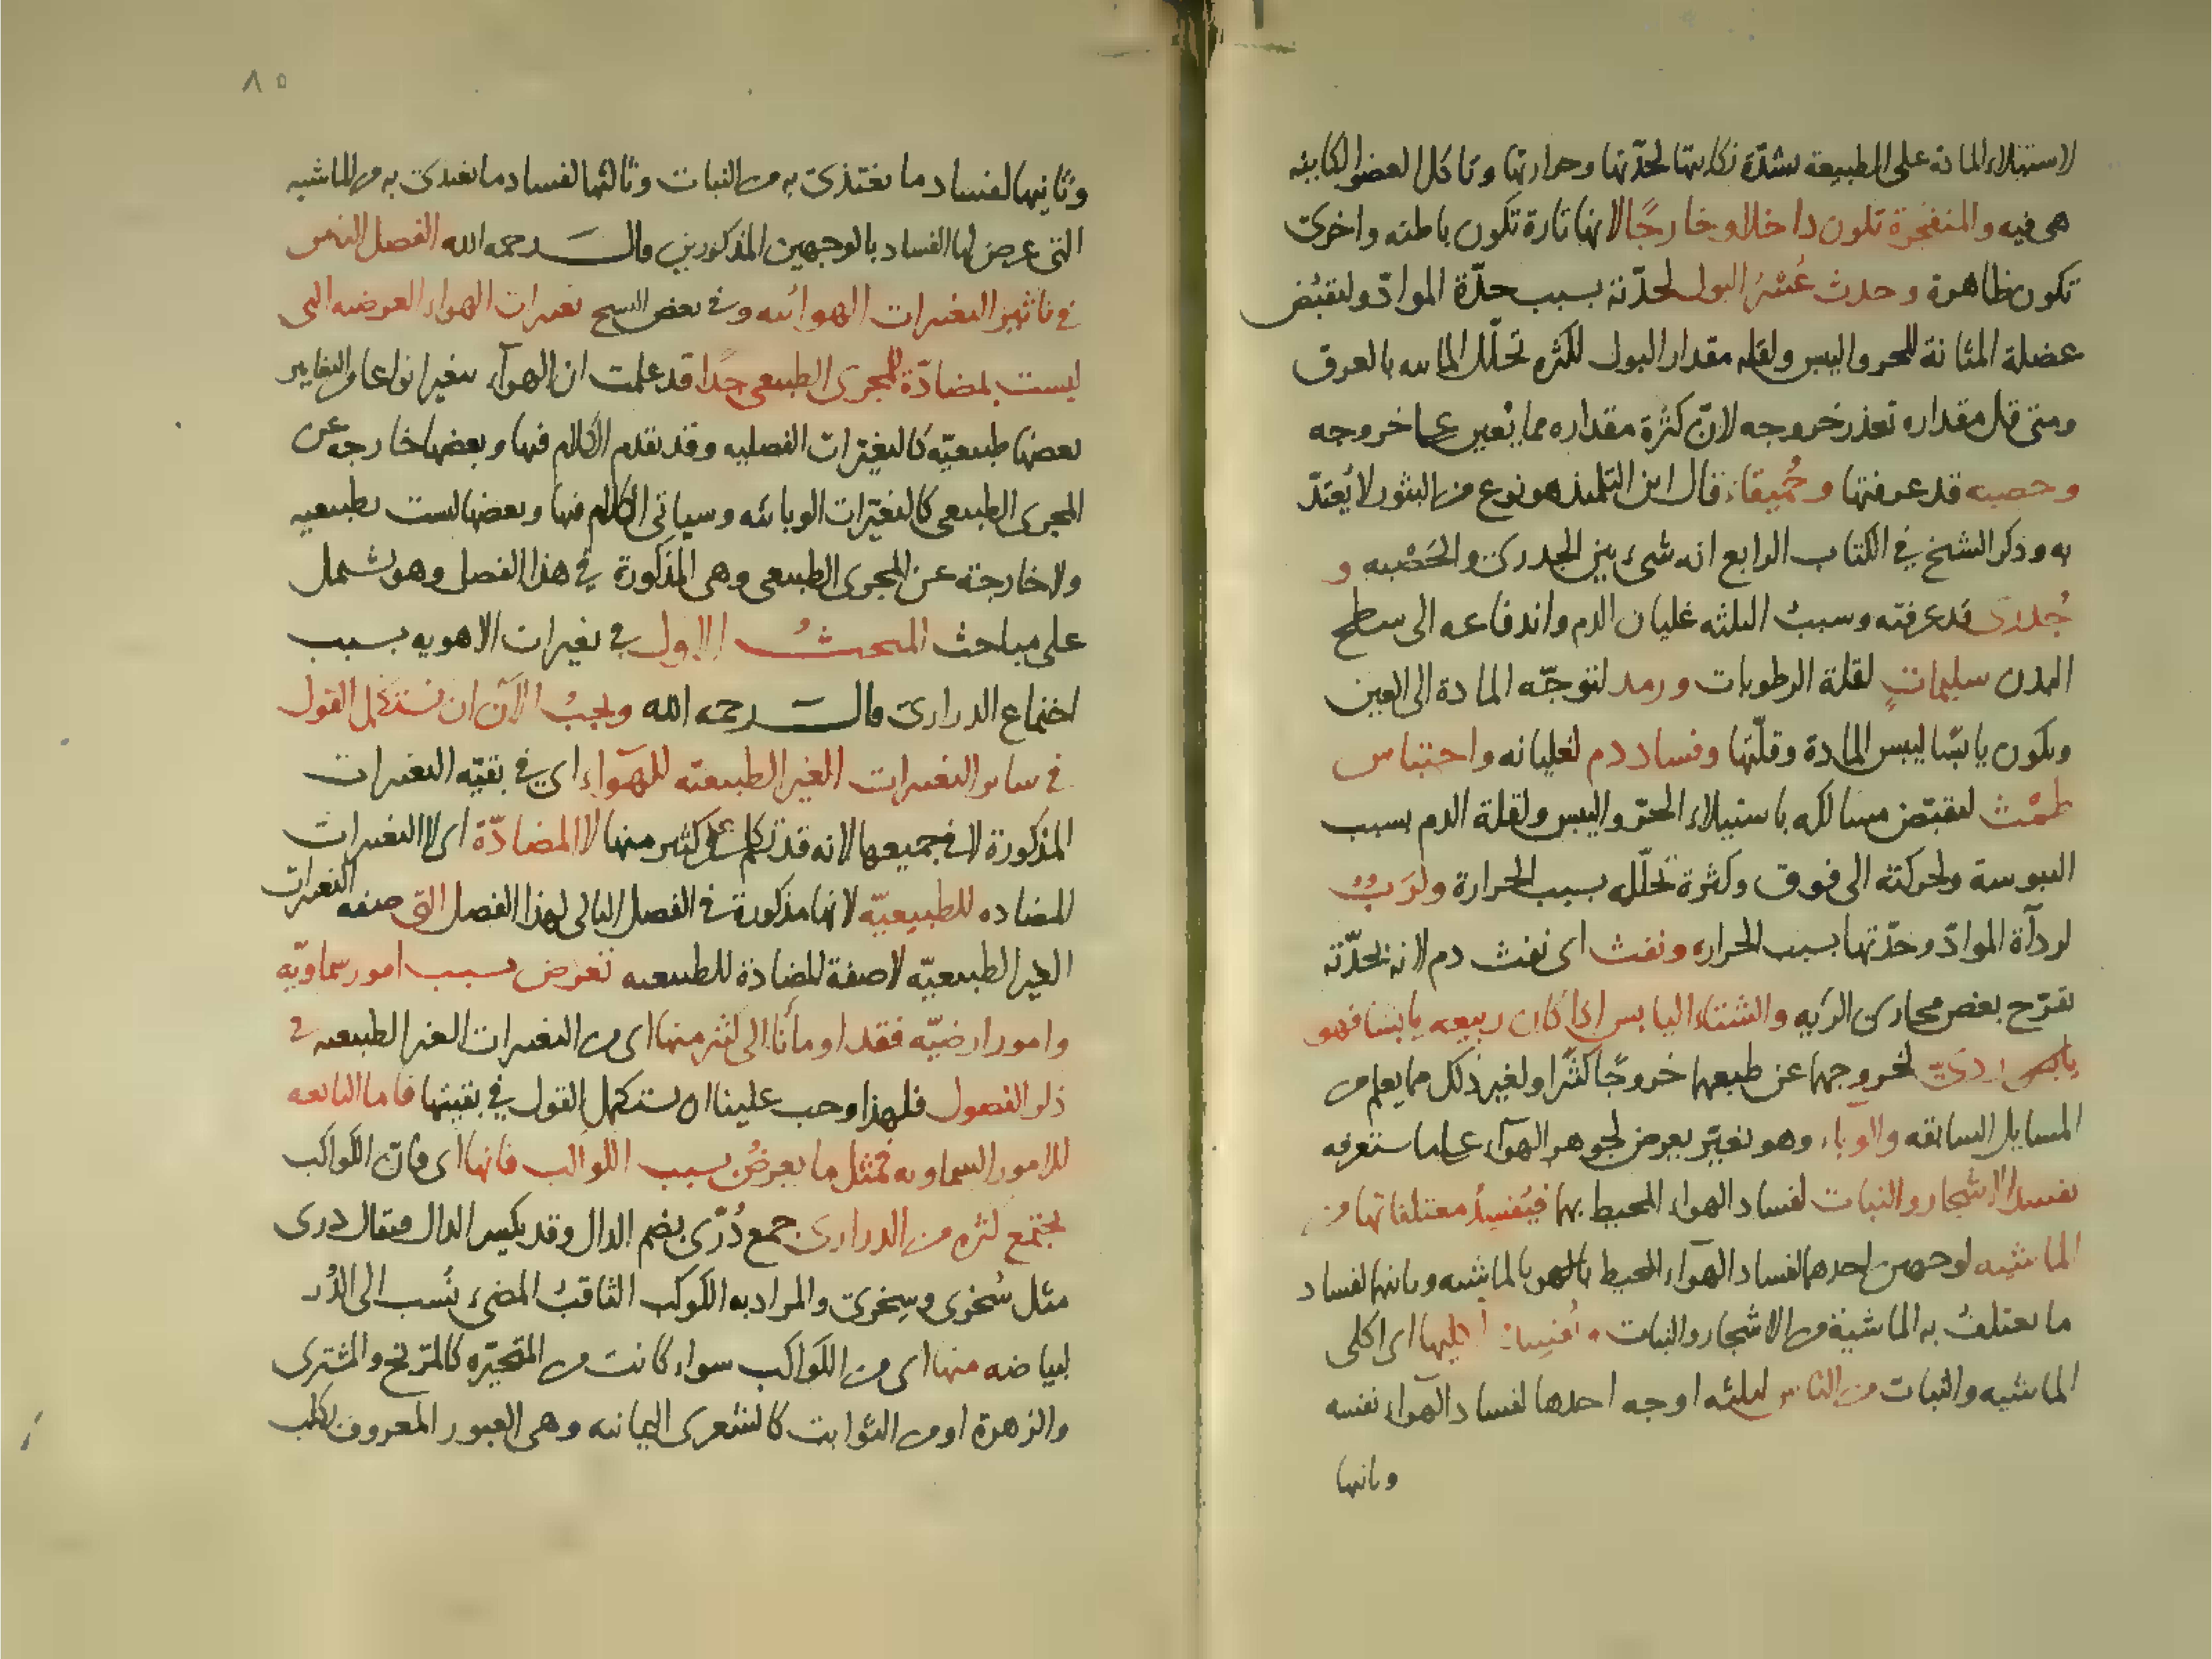 لاستيلاء المادة على الطبيعة بشدّة نكايتها لحدّتها وحرارتها وتاكل العضو الكاينه
هى فيه والمنفجرة تكون داخلا وخارجًا لانها تارة تكون باطنه واخرى
تكون ظاهرة وحدث عُسْرُ البول لحدّته بسبب حدّة الموادّ ولتقبُض
عضلة المثانة للحر واليبس ولقله مقدار البول لكثره تحلّل المائيه بالعرق
ومتى قل مقداره تعذر خروجه لانّ كثرة مقداره مما يُعين على خروجه
وحصبه قد عرفتها وحُميقاء قال ابن التلميذ هو نوع من البثور لا يُعتدّ
به وذكر الشيخ في الكتاب الرابع انه شىء بين الجدرى والحَصْبه و
جُدرى قد عرفته وسببُ الثلثه غليان الدم واندفاعه الى سطح
البدن سليماتٍ لقلة الرطوبات ورمد لتوجّه المادة الى العين
ويكون يابسًا ليبس المادة وقلّتها وفساد دم لغليانه واحتباس
طمْث لتقبّض مسالكه باستيلاء الحرّ واليبس ولقلة الدم بسبب
اليبوسة ولحركته الى فوق وكثرة تحلّله بسبب الحرارة وكَربُ
لردآة الموادّ وحدّتها بسبب الحراره ونفث اى نفث دم لانه لحدّته
يقرّح بعض مجارى الريه والشتاء اليابس اذا كان ربيعه يابسا فهو
يابس ردىّ لخروجهما عن طبعهما خروجًا كثيرًا ولغير ذلك مما يعلم من
المسايل السابقه والوباء وهو تغيّر يعرض لجوهر الهوآء على ما ستعرفه
يفسد الاشجار والنبات لفساد الهواء المحيط بها فيُفسِدُ معتلفاتها من
الماشيه لوجهين احدهما لفساد الهوآء المحيط بالماشيه وثانيهما لفساد
ما يعتلفُ به الماشية من الاشجار والنبات ويُفسِد اكليها اى اكلى
الماشيه والنبات من الناس لثلثه اوجه احدها لفساد الهواء نفسه
وثانيها
٨٥
وثانيها لفساد ما يغتذى به من النبات وثالثها لفساد ما يغتذى به من الماشيه
التى عرض لها الفساد بالوجهين المذكورين قال رحمه الله الفصل الثامن
في تاثير التغيرات الهوائيه وفى بعض النسخ تغيرات الهواء العرضيه التى
ليست بمضادّة للمجرى الطبيعى جدًا قد علمت ان الهوآء يتغير انواعا من التغايير
بعضها طبيعيّه كالتغيّرات الفصليه وقد تقدم الكلام فيها وبعضها خارجه عن
المجرى الطبيعى كالتغيّرات الوبائيه وسياتى الكلام فيها وبعضها ليست بطبيعيه
ولا خارجة عن المجرى الطبيعى وهى المذكورة في هذا الفصل وهو يشتمل
على مباحث المبحثُ الاول في تغيرات الاهويه بسبب
اجتماع الدرارى قال رحمه الله ويجبُ الآن ان نستكمل القول
في ساير التغيرات الغير الطبيعيّه للهوآء اى في بقيّه التغيرات
المذكورة لا في جميعها لانه قد تكلم على كثير منها لا المضادّة اى لا التغيرات
المضاده للطبيعيّه لانها مذكورة في الفصل التالى لهذا الفصل التى صفه التغيرات
الغير الطبيعيّه لا صفة للمضادة للطبيعيه تعرض بسبب امور سماويّه
وامور ارضيّه فقد اومأنا الى كثير منها اى من التغيرات الغير الطبيعيه في
ذكر الفصول فلهذا وجب علينا ان نستكمل القول في بقيتها فاما التابعه
للامور السماويه فمثل ما يعرضُ بسبب الكواكب فانها اى فان الكواكب
يجتمع كثير من الدرارى جمع دُرّى بضم الدال وقد يكسر الدال فيقال درى
مثل سُخرى وسِخرى والمراد به الكوكب الثاقبُ المضىء نُسب الى الدُر
لبياضه منها اى من الكواكب سواء كانت من المتحيّره كالمريخ والمشترى
والزهرة او من الثوابت كالشعرى اليمانيه وهى العبور المعروف بكلب